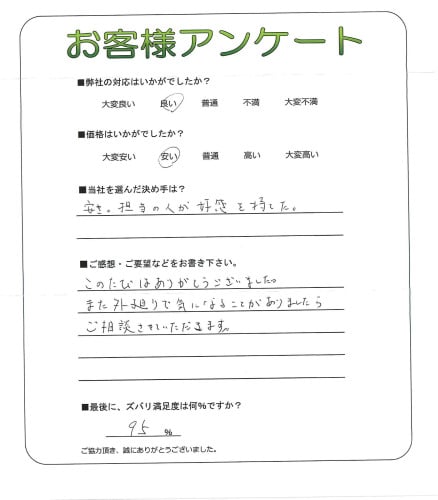 お客様アンケート
■弊社の対応はいかがでしたか？
大変良い 良い 普通 不満 大変不満
■価格はいかがでしたか？
大変安い 安い 普通 高い 大変高い
■当社を選んだ決め手は？
安さ。担当の人が好感を持てた。
■ご感想・ご要望などをお書き下さい。
このたびはありがとうございました。
また外廻りで気になることがありましたら
ご相談させていただきます。
■最後に、ズバリ満足度は何%ですか？
95 %
ご協力頂き、誠にありがとうございました。